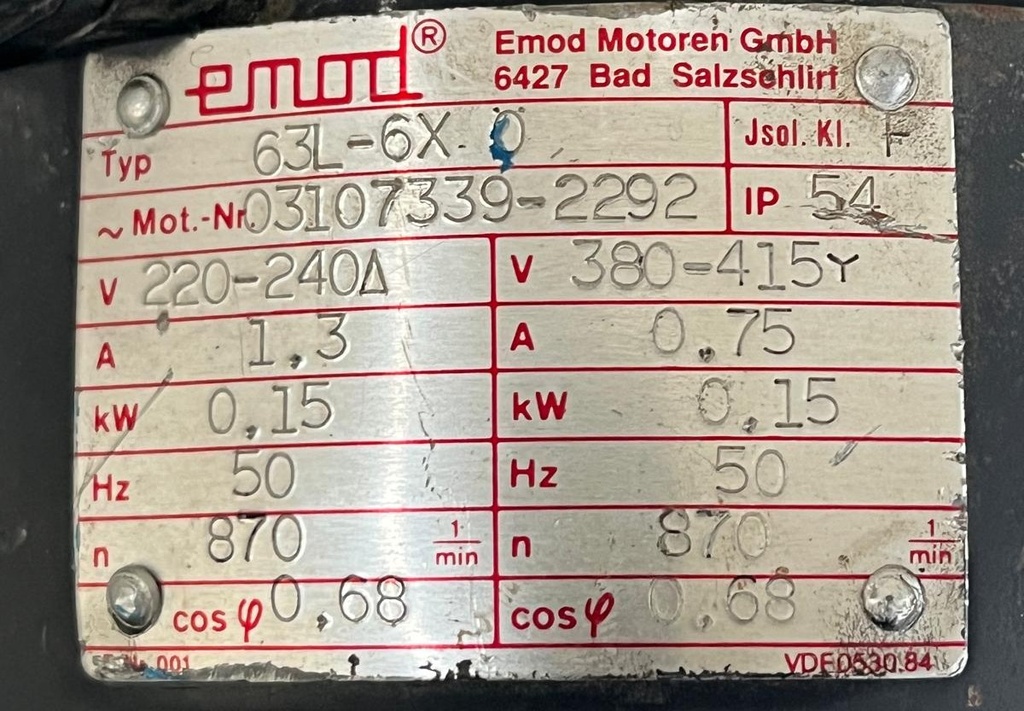 emod® Emod Motoren GmbH
6427 Bad Salzschlirf
Typ 63L-6X. 0 Jsol. Kl. F
~ Mot.-Nr. 03107339-2292 IP 54
V 220-240Δ V 380-415Y
A 1,3 A 0,75
kW 0,15 kW 0,15
Hz 50 Hz 50
n 870 1/min n 870 1/min
cos φ 0,68 cos φ 0,68
001 VDE 0530.84